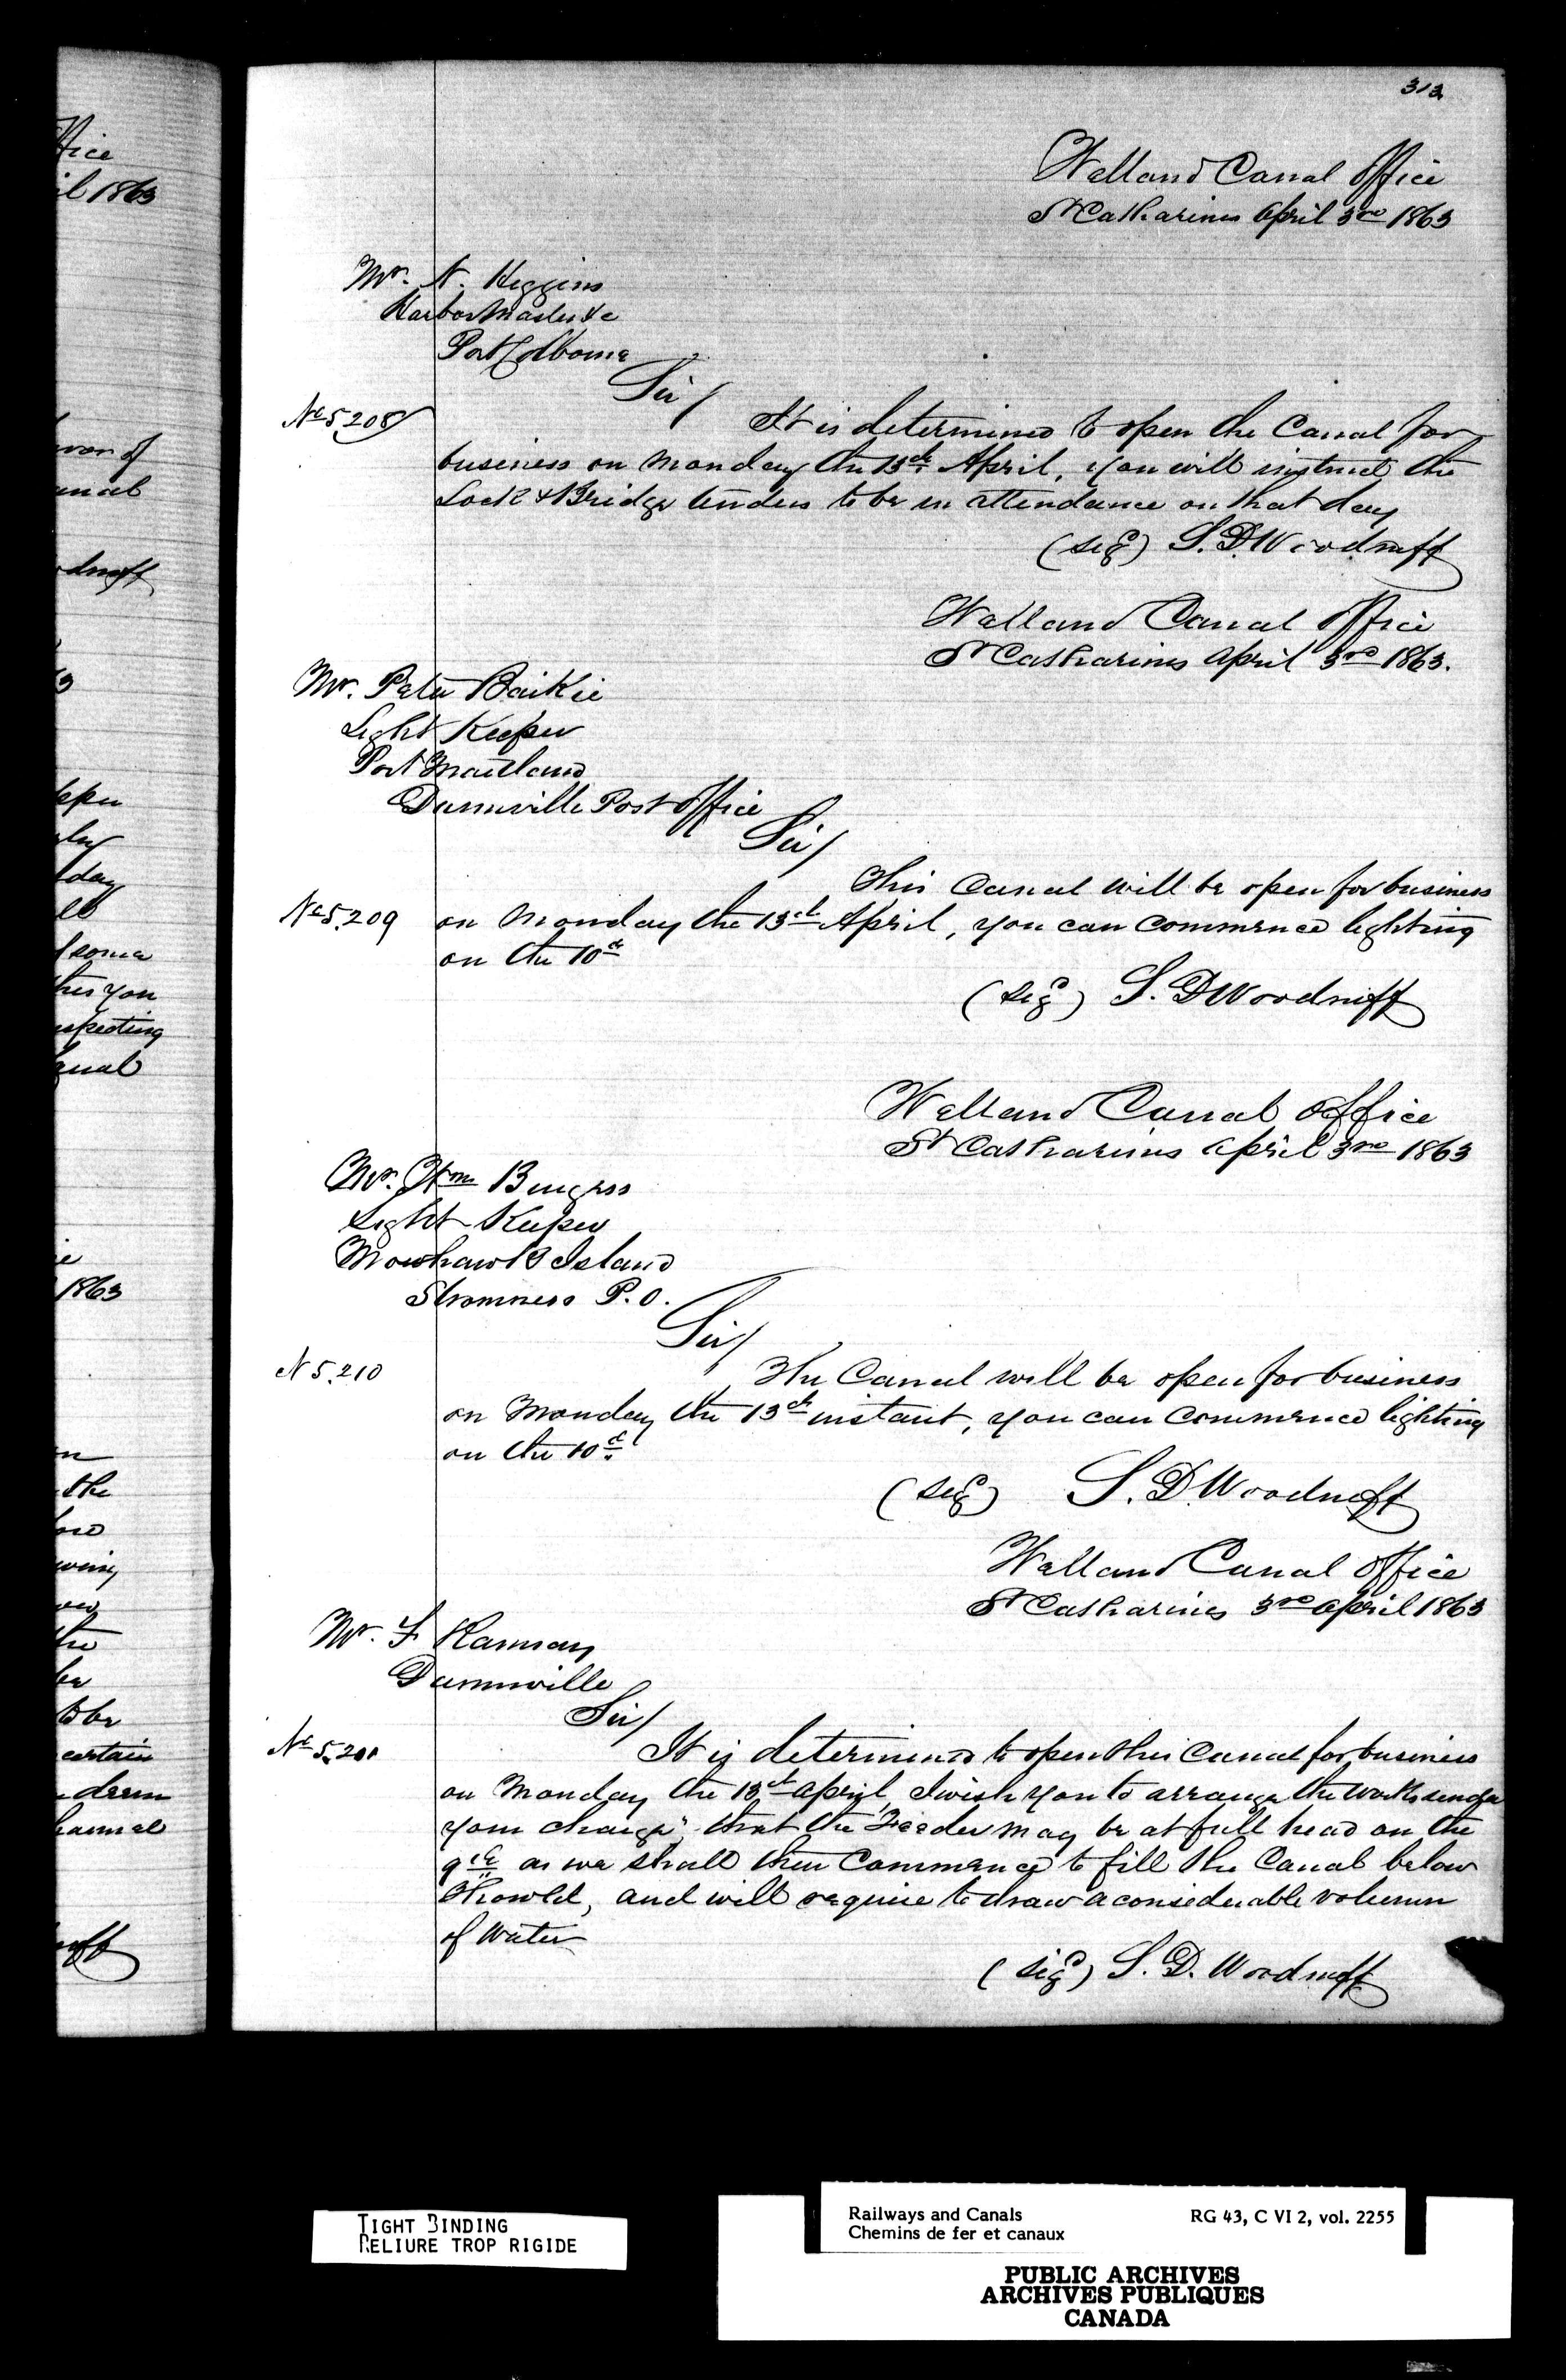 313
Welland Canal Office
St Catharines April 3rd 1863
Mr. N. Higgins
Harbor Master &c
Port Colborne
Sir/
No 5.208
It is determined to open the Canal for
business on Monday the 13th April, you will instruct the
Lock & Bridge tenders to be in attendance on that day
(sigd) S. D. Woodruff
Welland Canal Office
St Catharines April 3rd 1863.
Mr. Peter Baikie
Light Keeper
Port Maitland
Dunnville Post Office
Sir/
This Canal will be open for business
No 5.209 on Monday the 13th April, you can commence lighting
on the 10th
(sigd) S. D Woodruff
Welland Canal Office
St Catharines April 3rd 1863
Mr. Wm Burgess
Light Keeper
Mowhawk Island
Stromness P.O.
Sir/
N 5.210
The Canal will be open for business
on Monday the 13th instant, you can commence lighting
on the 10th
(sigd) S. D. Woodruff
Welland Canal Office
St Catharines 3rd April 1863
Mr. F Ramsay
Dunnville
Sir/
No 5.201
It is determined to open this Canal for business
on Monday the 13th April, I wish you to arrange the works under
your charge, that the Feeder may be at full head on the
9th as we shall then commence to fill the Canal below
Thorold, and will require to draw a considerable volumn
of Water
(sigd) S. D. Woodruff
TIGHT BINDING
RELIURE TROP RIGIDE
Railways and Canals RG 43, C VI 2, vol. 2255
Chemins de fer et canaux
PUBLIC ARCHIVES
ARCHIVES PUBLIQUES
CANADA